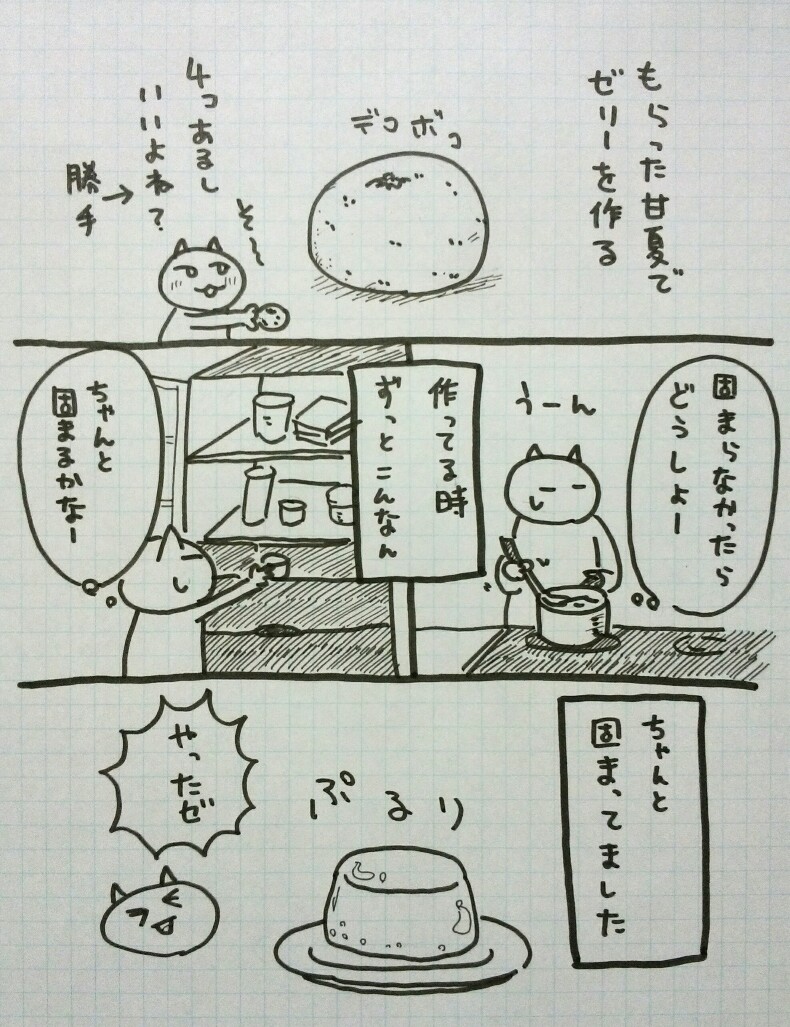 もらった甘夏で
ゼリーを作る
デコボコ
そ〜
4つあるし
いいよね?
→
勝手
固まらなかったら
どうしよー
うーん
作ってる時
ずっとこんなん
ちゃんと
固まるかなー
ちゃんと
固まってました
ぷるり
やったゼ